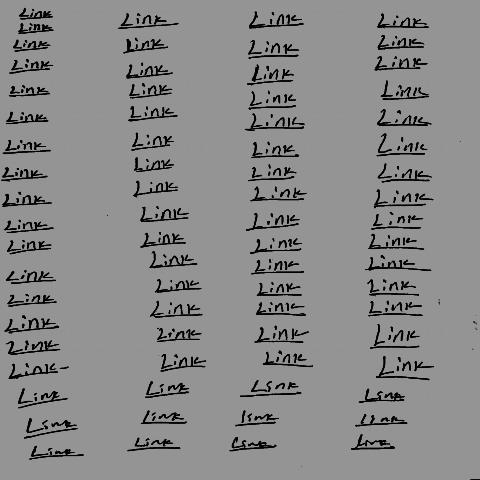 Link Link Link Link
Link
Link Link Link Link
Link Link Link Link
Link Link Link Link
Link Link Link Link
Link Link Link Link
Link Link Link Link
Link Link Link Link
Link Link Link Link
Link Link Link Link
Link Link Link Link
Link Link Link Link
Link Link Link Link
Link Link Link Link
Link Link Link Link
Link Link Link Link
Link Link Link Link
Link Link Link Link